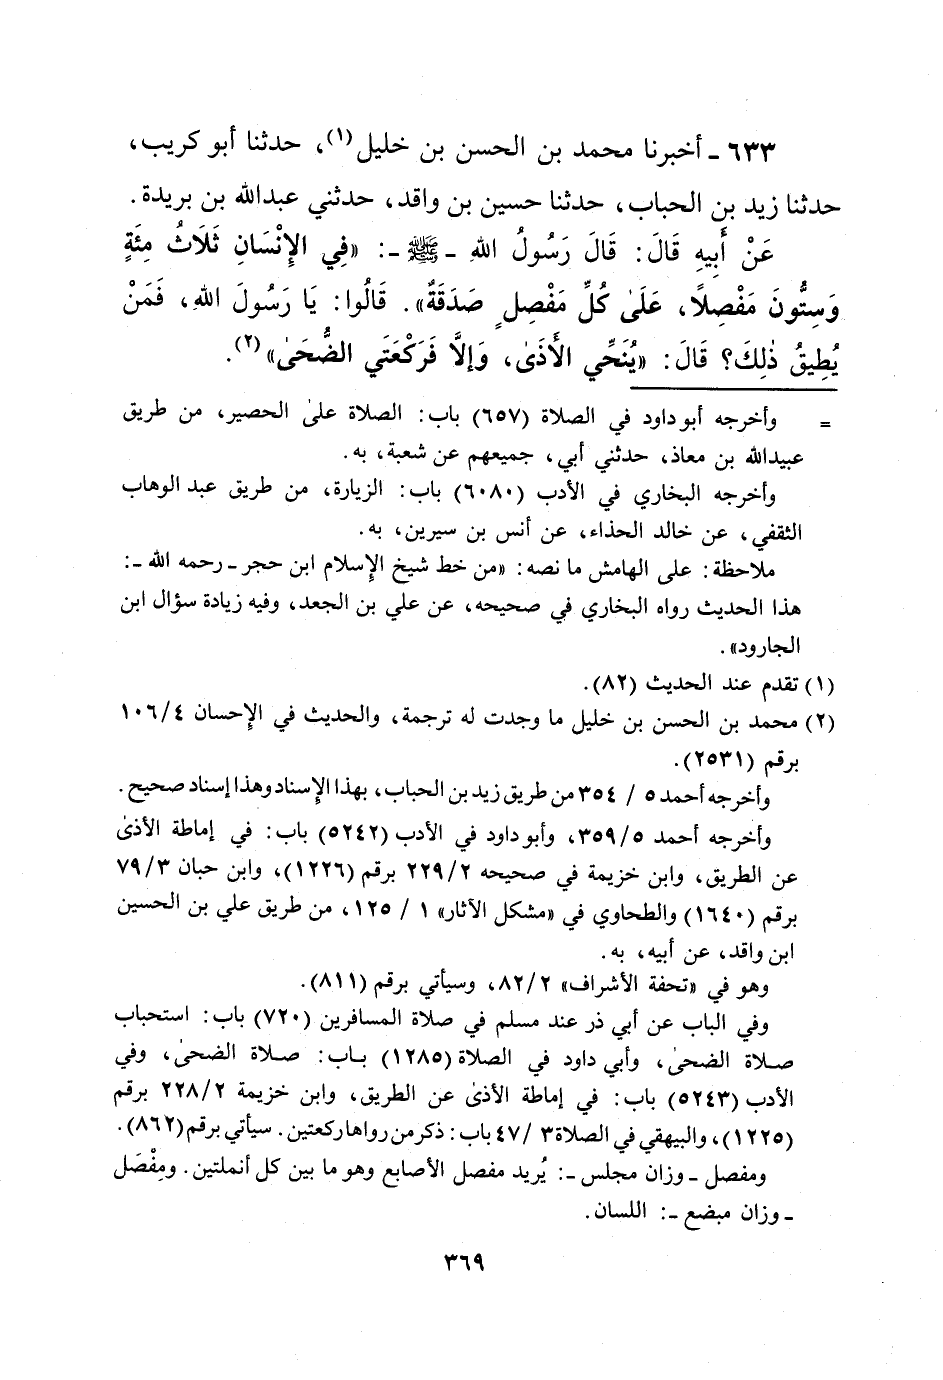 ٦٣٣ ـ أخبرنا محمد بن الحسن بن خليل(١)، حدثنا أبو كريب،
حدثنا زيد بن الحباب، حدثنا حسين بن واقد، حدثني عبدالله بن بريدة.
عَنْ أَبِيهِ قَالَ: قَالَ رَسُولُ اللهِ ـ ﷺ ـ: «فِي الإِنْسَانِ ثَلَاثُ مِئَةٍ
وَسِتُّونَ مَفْصِلًا، عَلَىٰ كُلِّ مَفْصِلٍ صَدَقَةٌ». قَالُوا: يَا رَسُولَ اللهِ، فَمَنْ
يُطِيقُ ذٰلِكَ؟ قَالَ: «يُنَحِّي الأَذَىٰ، وَإلَّا فَرَكْعَتَيِ الضُّحَىٰ»(٢).
= وأخرجه أبو داود في الصلاة (٦٥٧) باب: الصلاة علىٰ الحصير، من طريق
عبيدالله بن معاذ، حدثني أبي، جميعهم عن شعبة، به.
وأخرجه البخاري في الأدب (٦٠٨٠) باب: الزيارة، من طريق عبد الوهاب
الثقفي، عن خالد الحذاء، عن أنس بن سيرين، به.
ملاحظة: على الهامش ما نصه: «من خط شيخ الإسلام ابن حجر ـ رحمه الله ـ:
هذا الحديث رواه البخاري في صحيحه، عن علي بن الجعد، وفيه زيادة سؤال ابن
الجارود».
(١) تقدم عند الحديث (٨٢).
(٢) محمد بن الحسن بن خليل ما وجدت له ترجمة، والحديث في الإحسان ٤/ ١٠٦
برقم (٢٥٣١).
وأخرجه أحمد ٥ / ٣٥٤ من طريق زيد بن الحباب، بهذا الإسناد وهذا إسناد صحيح.
وأخرجه أحمد ٥/ ٣٥٩، وأبو داود في الأدب (٥٢٤٢) باب: في إماطة الأذىٰ
عن الطريق، وابن خزيمة في صحيحه ٢/ ٢٢٩ برقم (١٢٢٦)، وابن حبان ٣/ ٧٩
برقم (١٦٤٠) والطحاوي في «مشكل الآثار» ١ / ١٢٥، من طريق علي بن الحسين
ابن واقد، عن أبيه، به.
وهو في «تحفة الأشراف» ٢/ ٨٢، وسيأتي برقم (٨١١).
وفي الباب عن أبي ذر عند مسلم في صلاة المسافرين (٧٢٠) باب: استحباب
صلاة الضحىٰ، وأبي داود في الصلاة (١٢٨٥) باب: صلاة الضحىٰ، وفي
الأدب (٥٢٤٣) باب: في إماطة الأذىٰ عن الطريق، وابن خزيمة ٢/ ٢٢٨ برقم
(١٢٢٥)، والبيهقي في الصلاة ٣ / ٤٧ باب: ذكر من رواها ركعتين. سيأتي برقم (٨٦٢).
ومفصل ـ وزان مجلس ـ: يُريد مفصل الأصابع وهو ما بين كل أنملتين. ومِفْصَل
ـ وزان مبضع ـ: اللسان.
٣٦٩